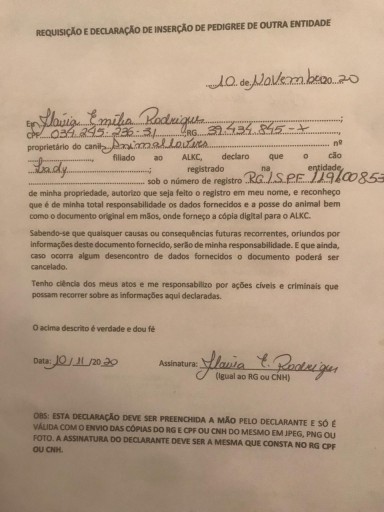 REQUISIÇÃO E DECLARAÇÃO DE INSERÇÃO DE PEDIGREE DE OUTRA ENTIDADE
10 de Novembro 20
Eu, Flavia Emilia Rodrigues;
CPF 034.245-236-31, RG 39.434.845-X,
proprietário do canil Animallovers nº
, filiado ao ALKC, declaro que o cão
Lady; registrado na entidade,
sob o número de registro RG/SPF 119600853
de minha propriedade, autorizo que seja feito o registro em meu nome, e reconheço
que é de minha total responsabilidade os dados fornecidos e a posse do animal bem
como o documento original em mãos, onde forneço a cópia digital para o ALKC.
Sabendo-se que quaisquer causas ou consequências futuras recorrentes, oriundos por
informações deste documento fornecido, serão de minha responsabilidade. E que ainda,
caso ocorra algum desencontro de dados fornecidos o documento poderá ser
cancelado.
Tenho ciência dos meus atos e me responsabilizo por ações cíveis e criminais que
possam recorrer sobre as informações aqui declaradas.
O acima descrito é verdade e dou fé
Data: 10/11/2020 Assinatura: Flavia E. Rodrigues
(Igual ao RG ou CNH)
OBS: ESTA DECLARAÇÃO DEVE SER PREENCHIDA A MÃO PELO DECLARANTE E SÓ É
VÁLIDA COM O ENVIO DAS CÓPIAS DO RG E CPF OU CNH DO MESMO EM JPEG, PNG OU
FOTO. A ASSINATURA DO DECLARANTE DEVE SER A MESMA QUE CONSTA NO RG CPF
OU CNH.